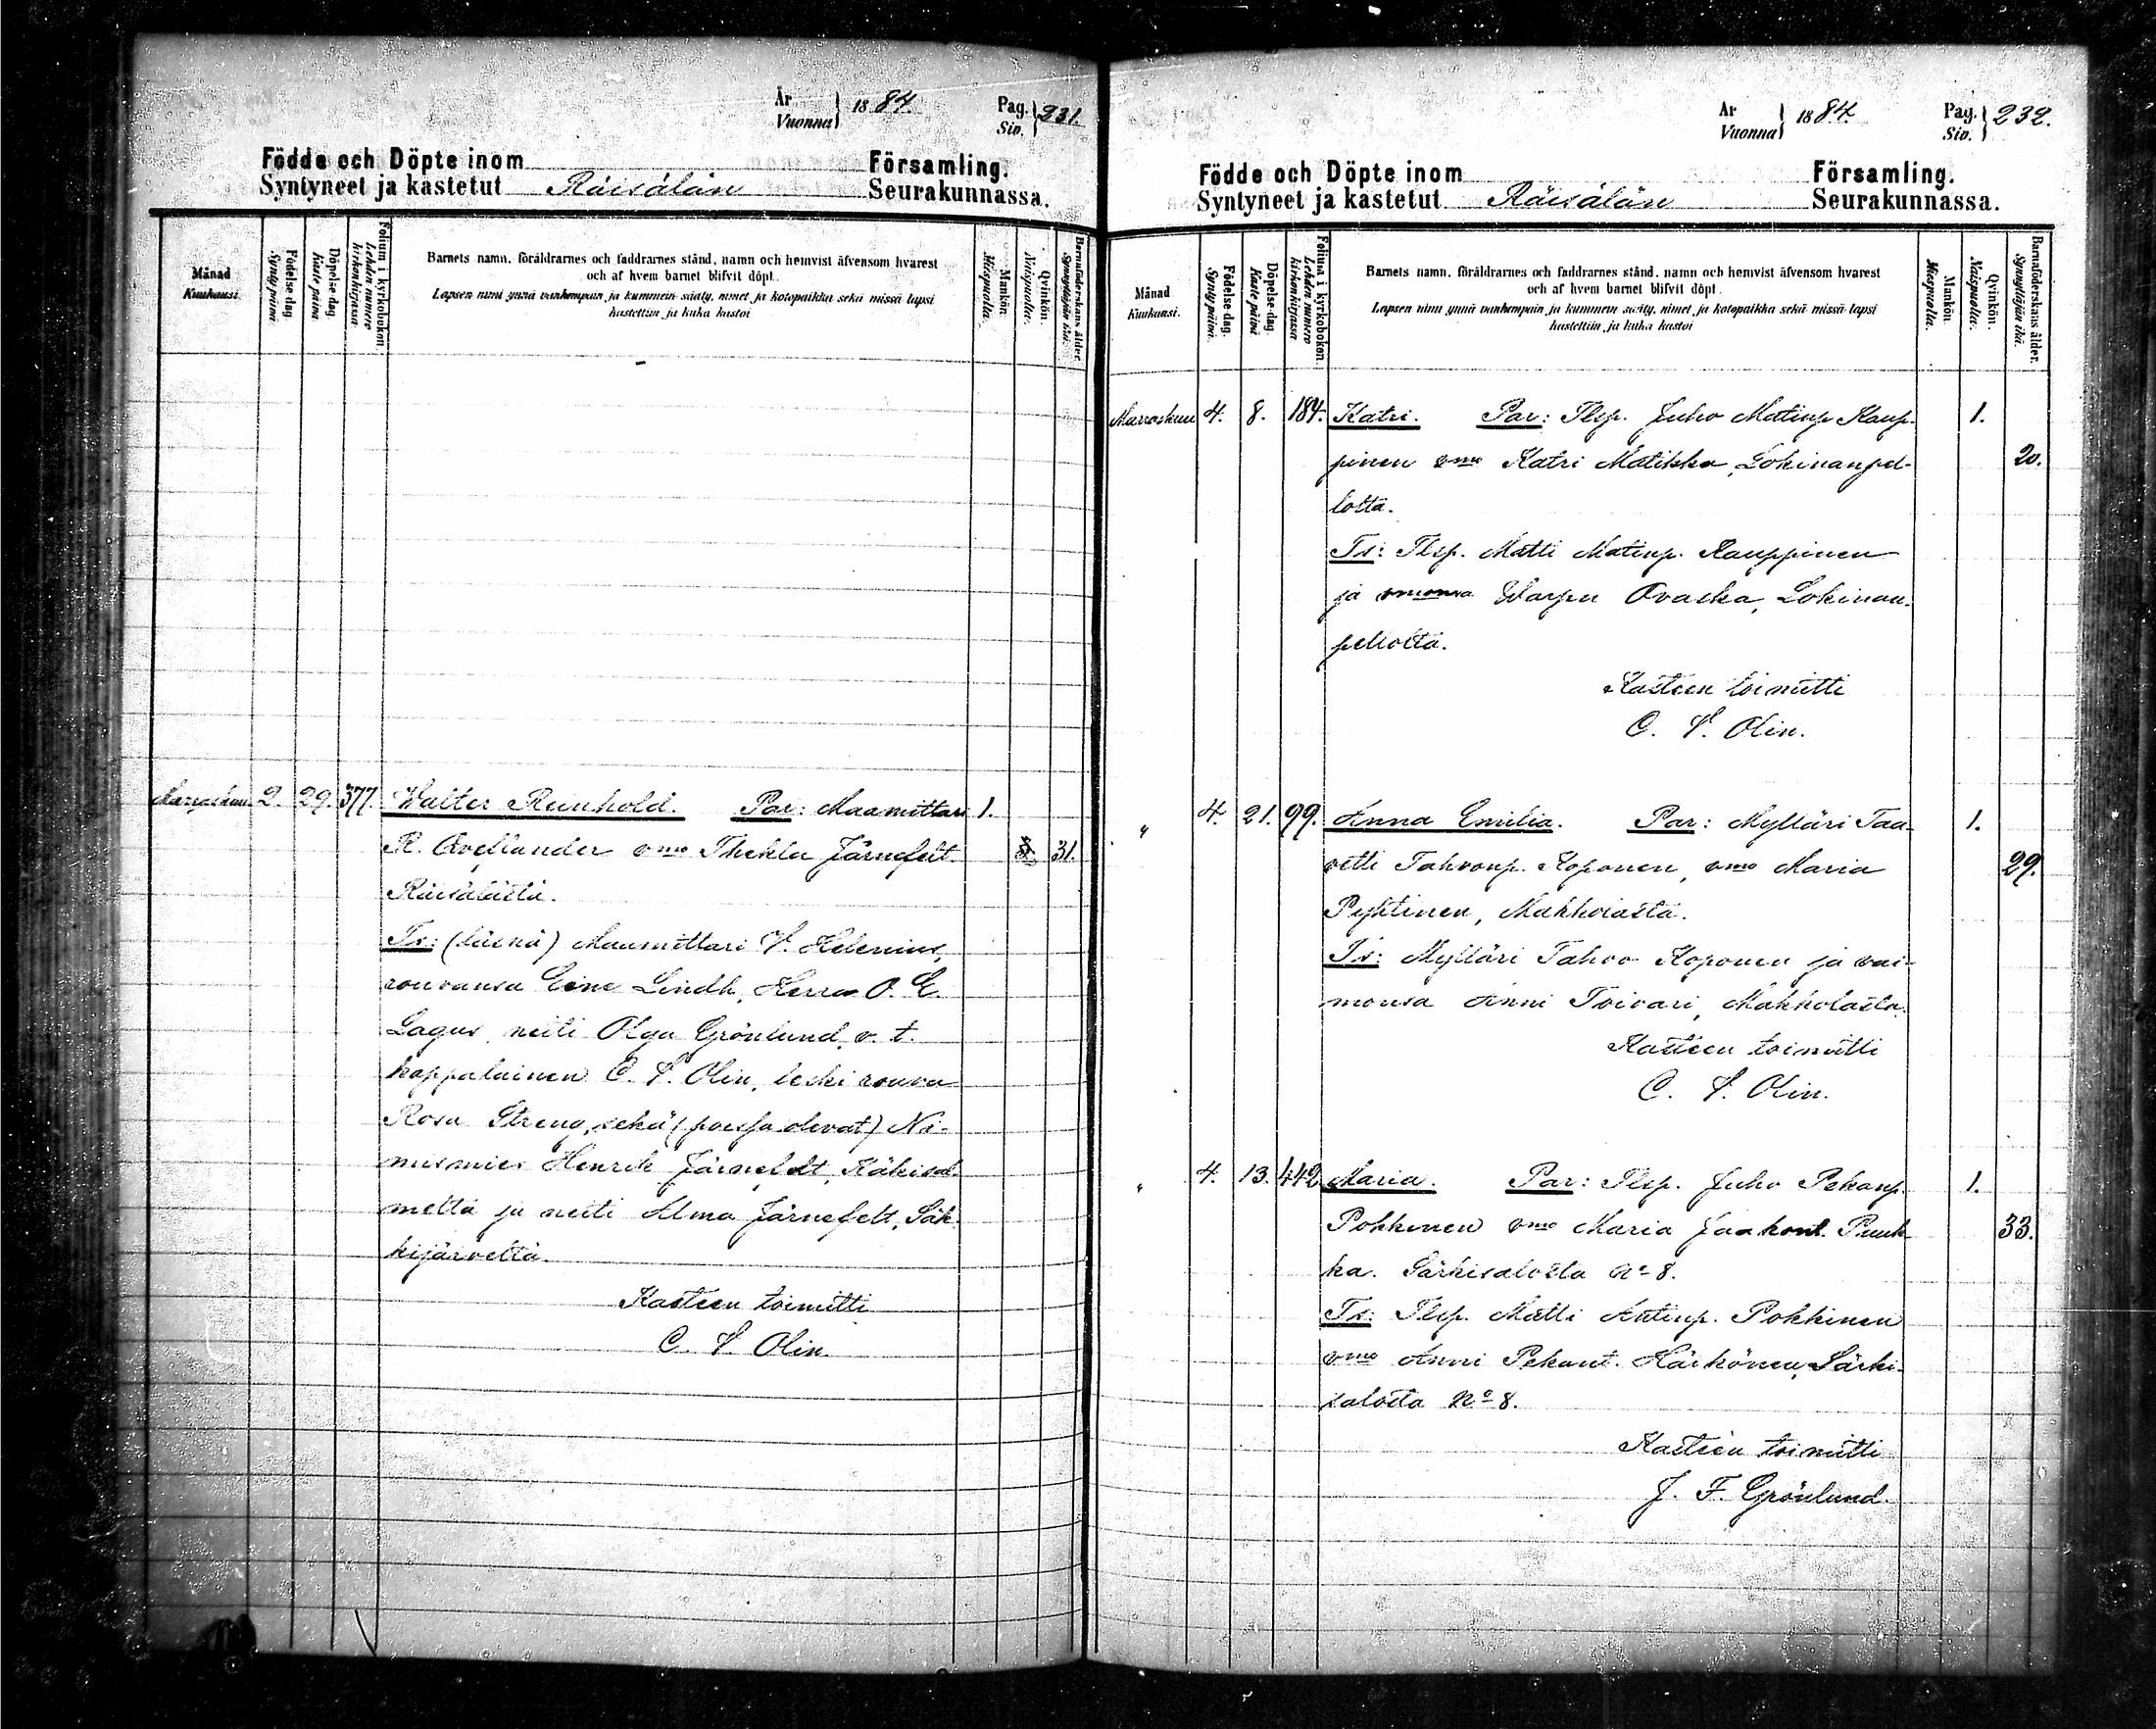 År
Vuonna } 1884.
Pag.
Siv. } 231.
Födde och Döpte inom Församling.
Syntyneet ja kastetut Räisälän Seurakunnassa.
Månad
Kuukausi.
Födelse dag.
Syntypäivä
Döpelse dag.
Kaste päivä
Folium i kyrkobokon
Lehden numero
kirkonkirjassa.
Barnets namn, föräldrarnes och faddrarnes stånd, namn och hemvist äfvensom hvarest
och af hvem barnet blifvit döpt.
Lapsen nimi ynnä vanhempain ja kummein sääty, nimet ja kotopaikka sekä missä lapsi
kastettiin ja kuka kastoi
Mankön.
Miespuolia.
Qvinkön.
Naispuolia.
Barnaföderskans ålder.
Synnyttäjän ikä.
Marraskuu 2. 29. 377. Walter Reinhold. Par: Maamittari 1.
R. Avellander vmo Thekla Järnefelt 31.
Räisälästä.
Ts: (läsnä) Maamittari V. Helenius,
rouvansa Eine Lindh, Herra O. E.
Lagus, neiti Olga Grönlund, v. t.
kappalainen C. S. Olin, leski rouva
Rosa Streng, sekä (poissa olevat) Ni-
mismies Henrik Järnefelt, Käkisal-
melta ja neiti Alma Järnefelt, Säk-
kijärveltä.
Kasteen toimitti
C. S. Olin.
År
Vuonna } 1884.
Pag.
Siv. } 232.
Födde och Döpte inom Församling.
Syntyneet ja kastetut Räisälän Seurakunnassa.
Månad
Kuukausi.
Födelse dag.
Syntypäivä.
Döpelse dag.
Kaste päivä
Folium i kyrkobokon
Lehden numero
kirkonkirjassa
Barnets namn, föräldrarnes och faddrarnes stånd, namn och hemvist äfvensom hvarest
och af hvem barnet blifvit döpt.
Lapsen nimi ynnä vanhempain ja kummein sääty, nimet ja kotopaikka sekä missä lapsi
kastettiin ja kuka kastoi
Mankön.
Miespuolia.
Qvinkön.
Naispuolia.
Barnaföderskans ålder.
Synnyttäjän ikä.
Marraskuu 4. 8. 184. Katri. Par: Tlsp. Juho Matinp Kaup- 1.
pinen vmo Katri Matikka, Lokinanpel- 20.
lolta.
Ts: Tlsp. Matti Matinp. Kauppinen
ja vmonsa Warpu Ovaska, Lokinan-
pellolta.
Kasteen toimitti
C. S. Olin.
" 4. 21. 99. Anna Emilia. Par: Mylläri Taa- 1.
vetti Tahvonp. Koponen, vmo Maria 29.
Pyhtinen, Makkolasta.
Ts: Mylläri Tahvo Koponen ja vai-
monsa Anni Toivari, Makkolasta.
Kasteen toimitti
C. S. Olin.
" 4. 13. 442 Maria. Par: Tlsp. Juho Pekanp. 1.
Pokkinen vmo Maria Jaakont. Puuk- 33.
ka. Särkisalosta No 8.
Ts: Tlsp. Matti Antinp. Pokkinen
vmo Anni Pekant. Härkönen, Särki-
salosta No 8.
Kasteen toimitti
J. F. Grönlund.